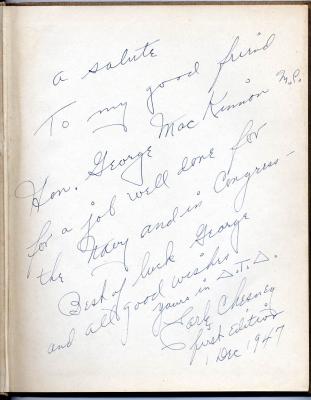 a salute
To my good friend
Hon. George MacKinnon M.P.
for a job well done for
the Navy and in Congress –
Best of luck George
and all good wishes
yours in Δ.T.Δ.
Chesney
first Edition
1 Dec 1947